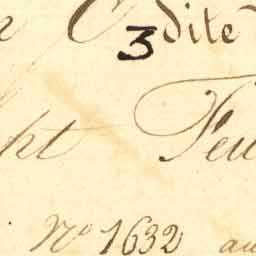 3 dite
ht Feu
No 1632 au